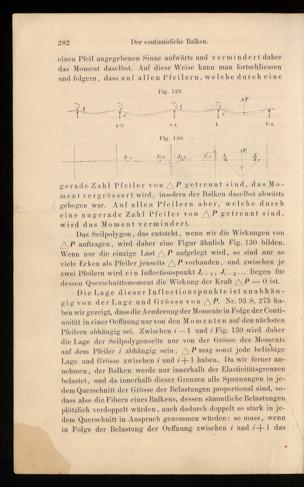 282 Der continuirliche Balken.
einen Pfeil angegebenen Sinne aufwärts und vermindert daher
das Moment daselbst. Auf diese Weise kann man fortschliessen
und folgern, dass auf allen Pfeilern, welche durch eine
Fig. 129.
ΔP
Fig. 130.
gerade Zahl Pfeiler von △P getrennt sind, das Mo-
ment vergrössert wird, insofern der Balken daselbst abwärts
gebogen war. Auf allen Pfeilern aber, welche durch
eine ungerade Zahl Pfeiler von △P getrennt sind,
wird das Moment vermindert.
Das Seilpolygon, das entsteht, wenn wir die Wirkungen von
△P auftragen, wird daher eine Figur ähnlich Fig. 130 bilden.
Wenn nur die einzige Last △P aufgelegt wird, so sind nur so
viele Ecken als Pfeiler jenseits △P vorhanden, und zwischen je
zwei Pfeilern wird ein Inflectionspunkt liegen für
dessen Querschnittsmoment die Wirkung der Kraft △P = 0 ist.
Die Lage dieser Inflectionspunkte ist unabhän-
gig von der Lage und Grösse von △P. Nr. 93 S. 275 ha-
ben wir gezeigt, dass die Aenderung der Momente in Folge der Conti-
nuität in einer Oeffnung nur von den Momenten auf den nächsten
Pfeilern abhängig sei. Zwischen i − 1 und i Fig. 130 wird daher
die Lage der Seilpolygonseite nur von der Grösse des Moments
auf dem Pfeiler i abhängig sein, △P mag sonst jede beliebige
Lage und Grösse zwischen i und i + 1 haben. Da wir ferner an-
nehmen, der Balken werde nur innerhalb der Elasticitätsgrenzen
belastet, und da innerhalb dieser Grenzen alle Spannungen in je-
dem Querschnitt der Grösse der Belastungen proportional sind, so-
dass also die Fibern eines Balkens, dessen sämmtliche Belastungen
plötzlich verdoppelt würden, auch dadurch doppelt so stark in je-
dem Querschnitt in Anspruch genommen würden: so muss, wenn
in Folge der Belastung der Oeffnung zwischen i und i + 1 das